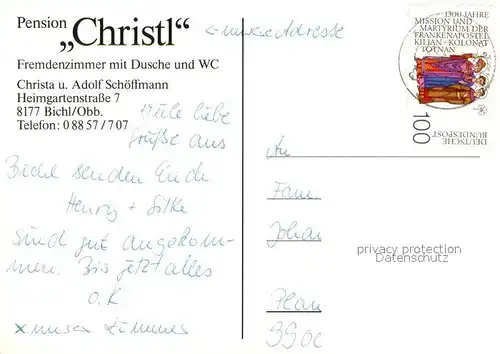 Pension
„Christl“
Fremdenzimmer mit Dusche und WC
Christa u. Adolf Schöffmann
Heimgartenstraße 7
8177 Bichl/Obb.
Telefon: 0 88 57 / 7 07
← unsere Adresse
Viele liebe
Grüße aus
Bichl senden Euch
Henry + Silke
sind gut angekom-
men. Bis jetzt alles
o.K
x unser Zimmer
1300 JAHRE
MISSION UND
MARTYRIUM DER
FRANKENAPOSTEL
KILIAN · KOLONAT
· TOTNAN
100
DEUTSCHE
BUNDESPOST
An
Fam.
Plau
9900
privacy protection
Datenschutz